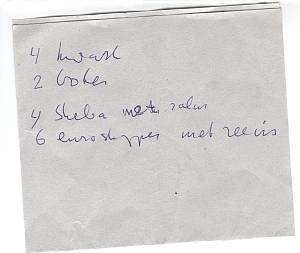 4 kwark
2 boter
4 Sheba met zalm
6 euroshopper met zeevis